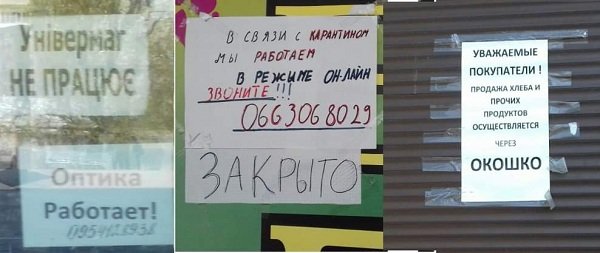 Універмаг
НЕ ПРАЦЮЄ
Оптика
Работает!
0954128938
В СВЯЗИ С КАРАНТИНОМ
МЫ РАБОТАЕМ
В РЕЖИМЕ ОН-ЛАЙН
ЗВОНИТЕ!!!
0663068029
ЗАКРЫТО
УВАЖАЕМЫЕ
ПОКУПАТЕЛИ !
ПРОДАЖА ХЛЕБА И
ПРОЧИХ
ПРОДУКТОВ
ОСУЩЕСТВЛЯЕТСЯ
ЧЕРЕЗ
ОКОШКО